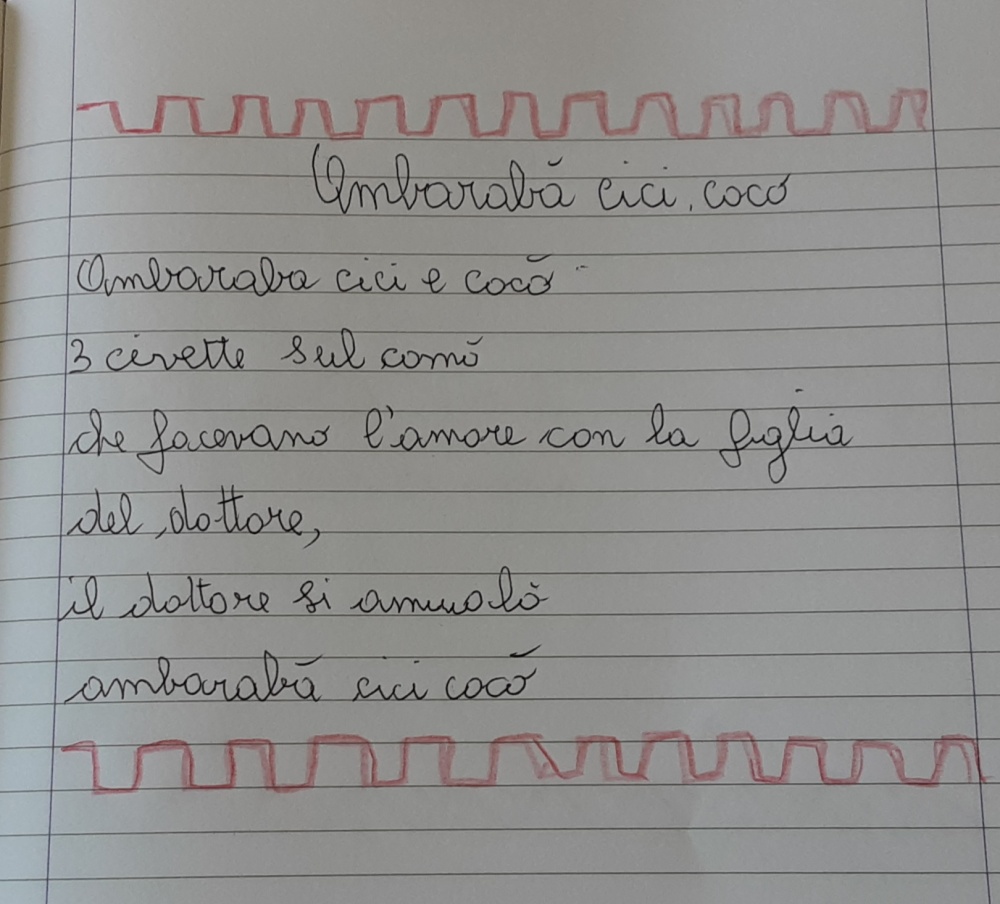 Ambarabà cici, cocò
Ambaraba cici e cocò
3 civette sul comò
che facevano l'amore con la figlia
del dottore,
il dottore si ammalò
ambarabà cici cocò